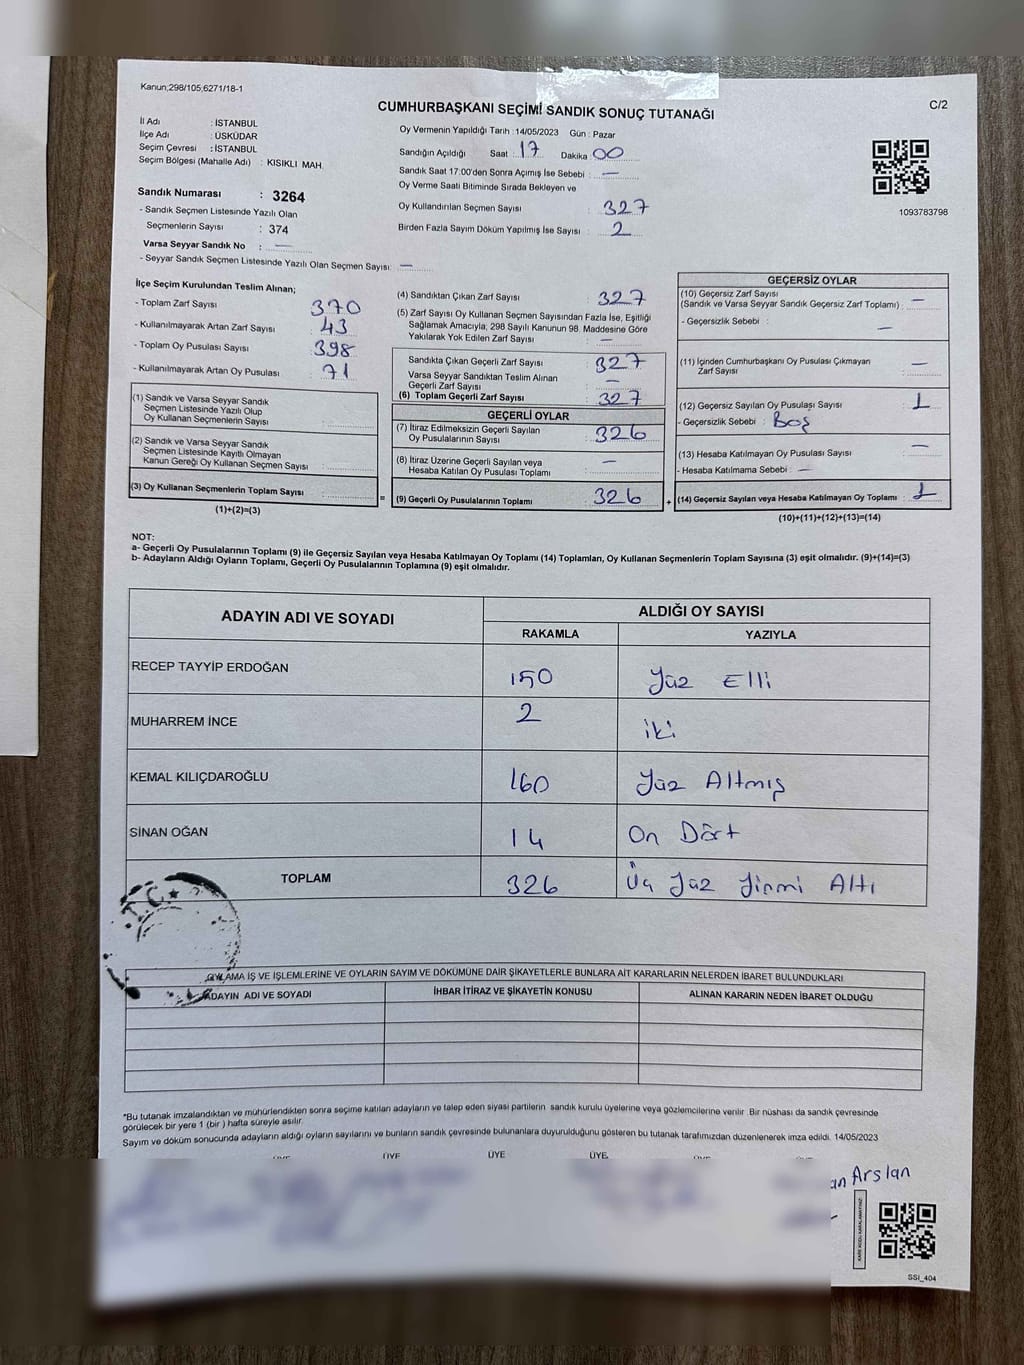 Kanun;298/105;6271/18-1
CUMHURBAŞKANI SEÇİMİ SANDIK SONUÇ TUTANAĞI
C/2
İl Adı : İSTANBUL
İlçe Adı : ÜSKÜDAR
Seçim Çevresi : İSTANBUL
Seçim Bölgesi (Mahalle Adı) : KISIKLI MAH.
Sandık Numarası : 3264
- Sandık Seçmen Listesinde Yazılı Olan
Seçmenlerin Sayısı : 374
Varsa Seyyar Sandık No : —
- Seyyar Sandık Seçmen Listesinde Yazılı Olan Seçmen Sayısı: —
Oy Vermenin Yapıldığı Tarih :14/05/2023 Gün : Pazar
Sandığın Açıldığı Saat : 17 Dakika : 00
Sandık Saat 17:00'den Sonra Açılmış İse Sebebi : —
Oy Verme Saati Bitiminde Sırada Bekleyen ve
Oy Kullandırılan Seçmen Sayısı : 327
Birden Fazla Sayım Döküm Yapılmış İse Sayısı : 2
1093783798
İlçe Seçim Kurulundan Teslim Alınan;
- Toplam Zarf Sayısı : 370
- Kullanılmayarak Artan Zarf Sayısı : 43
- Toplam Oy Pusulası Sayısı : 398
- Kullanılmayarak Artan Oy Pusulası : 71
(1) Sandık ve Varsa Seyyar Sandık
Seçmen Listesinde Yazılı Olup
Oy Kullanan Seçmenlerin Sayısı :
(2) Sandık ve Varsa Seyyar Sandık
Seçmen Listesinde Kayıtlı Olmayan
Kanun Gereği Oy Kullanan Seçmen Sayısı :
(3) Oy Kullanan Seçmenlerin Toplam Sayısı :
(1)+(2)=(3)
=
(4) Sandıktan Çıkan Zarf Sayısı : 327
(5) Zarf Sayısı Oy Kullanan Seçmen Sayısından Fazla İse, Eşitliği
Sağlamak Amacıyla; 298 Sayılı Kanunun 98. Maddesine Göre
Yakılarak Yok Edilen Zarf Sayısı : —
Sandıkta Çıkan Geçerli Zarf Sayısı : 327
Varsa Seyyar Sandıktan Teslim Alınan
Geçerli Zarf Sayısı : —
(6) Toplam Geçerli Zarf Sayısı : 327
GEÇERLİ OYLAR
(7) İtiraz Edilmeksizin Geçerli Sayılan
Oy Pusulalarının Sayısı : 326
(8) İtiraz Üzerine Geçerli Sayılan veya
Hesaba Katılan Oy Pusulası Toplamı : —
(9) Geçerli Oy Pusulalarının Toplamı : 326
+
GEÇERSİZ OYLAR
(10) Geçersiz Zarf Sayısı
(Sandık ve Varsa Seyyar Sandık Geçersiz Zarf Toplamı) : —
- Geçersizlik Sebebi : —
(11) İçinden Cumhurbaşkanı Oy Pusulası Çıkmayan
Zarf Sayısı : —
(12) Geçersiz Sayılan Oy Pusulası Sayısı : 1
- Geçersizlik Sebebi : Boş
(13) Hesaba Katılmayan Oy Pusulası Sayısı : —
- Hesaba Katılmama Sebebi : —
(14) Geçersiz Sayılan veya Hesaba Katılmayan Oy Toplamı : 1
(10)+(11)+(12)+(13)=(14)
NOT:
a- Geçerli Oy Pusulalarının Toplamı (9) ile Geçersiz Sayılan veya Hesaba Katılmayan Oy Toplamı (14) Toplamları, Oy Kullanan Seçmenlerin Toplam Sayısına (3) eşit olmalıdır. (9)+(14)=(3)
b- Adayların Aldığı Oyların Toplamı, Geçerli Oy Pusulalarının Toplamına (9) eşit olmalıdır.
ADAYIN ADI VE SOYADI ALDIĞI OY SAYISI
RAKAMLA YAZIYLA
RECEP TAYYİP ERDOĞAN 150 Yüz Elli
MUHARREM İNCE 2 iki
KEMAL KILIÇDAROĞLU 160 Yüz Altmış
SİNAN OĞAN 14 On Dört
TOPLAM 326 Üç Yüz Yirmi Altı
T.C.
OYLAMA İŞ VE İŞLEMLERİNE VE OYLARIN SAYIM VE DÖKÜMÜNE DAİR ŞİKAYETLERLE BUNLARA AİT KARARLARIN NELERDEN İBARET BULUNDUKLARI
ADAYIN ADI VE SOYADI İHBAR İTİRAZ VE ŞİKAYETİN KONUSU ALINAN KARARIN NEDEN İBARET OLDUĞU
*Bu tutanak imzalandıktan ve mühürlendikten sonra seçime katılan adayların ve talep eden siyasi partilerin sandık kurulu üyelerine veya gözlemcilerine verilir. Bir nüshası da sandık çevresinde
görülecek bir yere 1 (bir ) hafta süreyle asılır.
Sayım ve döküm sonucunda adayların aldığı oyların sayılarını ve bunların sandık çevresinde bulunanlara duyurulduğunu gösteren bu tutanak tarafımızdan düzenlenerek imza edildi. 14/05/2023
ÜYE ÜYE ÜYE ÜYE ÜYE
an Arslan
KARE KODU KARALAMAYINIZ!
SSI_404